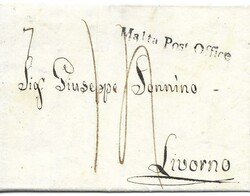 Malta Post Office
Sig. Giuseppe Sonnino
Livorno